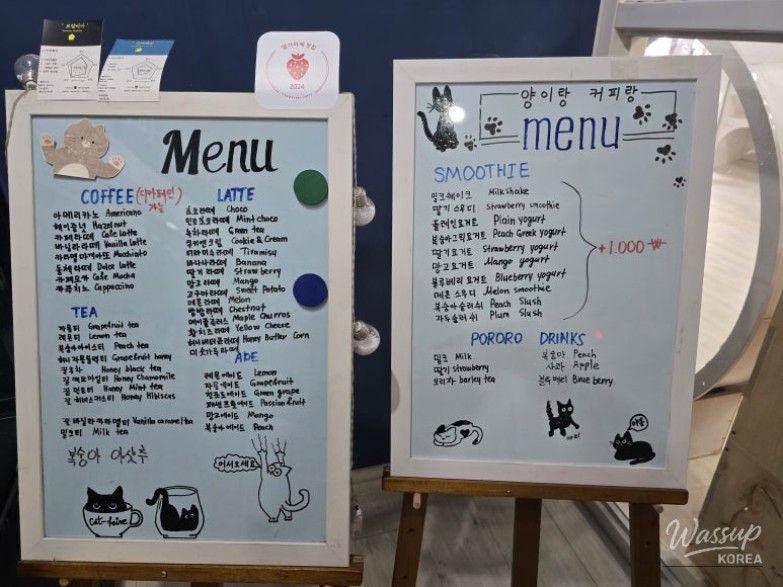 딸기라떼 맛집
2024
Menu
COFFEE (디카페인 가능)
아메리카노 Americano
헤이즐넛 Hazelnut
카페라떼 Cafe Latte
바닐라라떼 Vanilla Latte
카라멜 마끼아또 Macchiato
돌체라떼 Dolce Latte
카페모카 Cafe Mocha
카푸치노 Cappuccino
TEA
자몽티 Grapefruit tea
레몬티 Lemon tea
복숭아아이스티 Peach tea
허니자몽블랙티 Grapefruit honey
Honey black tea
Honey Chamomile
Honey Mint tea
Honey Hibiscus
Vanilla caramel tea
밀크티 Milk tea
복숭아 아샷추
LATTE
초코라떼 Choco
민트초코라떼 Mint choco
녹차라떼 Green tea
쿠키앤크림 Cookie & Cream
티라미수라떼 Tiramisu
바나나라떼 Banana
딸기라떼 Strawberry
망고라떼 Mango
고구마라떼 Sweet Potato
메론라떼 Melon
밤밤라떼 Chestnut
Maple Churros
황치즈라떼 Yellow Cheese
허니버터콘라떼 Honey Butter Corn
미숫가루라떼
ADE
레몬에이드 Lemon
자몽에이드 Grapefruit
청포도에이드 Green grape
패션후르츠에이드 Passionfruit
망고에이드 Mango
복숭아에이드 Peach
어서오세요
cat-feine
양이랑 커피랑
menu
SMOOTHIE
밀크쉐이크 Milkshake
딸기 스무디 Strawberry smoothie
플레인요거트 Plain yogurt
복숭아그릭요거트 Peach Greek yogurt
딸기요거트 Strawberry yogurt
망고요거트 Mango yogurt
블루베리 요거트 Blueberry yogurt
메론 스무디 Melon smoothie
복숭아슬러쉬 Peach Slush
자두슬러쉬 Plum Slush
+1.000 ₩
PORORO DRINKS
밀크 Milk
딸기 strawberry
보리차 barley tea
복숭아 Peach
사과 Apple
블루베리 Blueberry
야옹
Wassup
KOREA